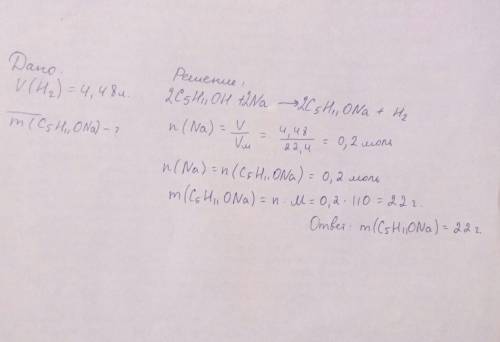 Дано:
V(H₂) = 4,48л.
m(C₅H₁₁ONa) - ?
Решение:
2C₅H₁₁OH + 2Na → 2C₅H₁₁ONa + H₂
n(Na) = V/Vм = 4,48/22,4 = 0,2 моль
n(Na) = n(C₅H₁₁ONa) = 0,2 моль
m(C₅H₁₁ONa) = n · M = 0,2 · 110 = 22 г.
Ответ: m(C₅H₁₁ONa) = 22 г